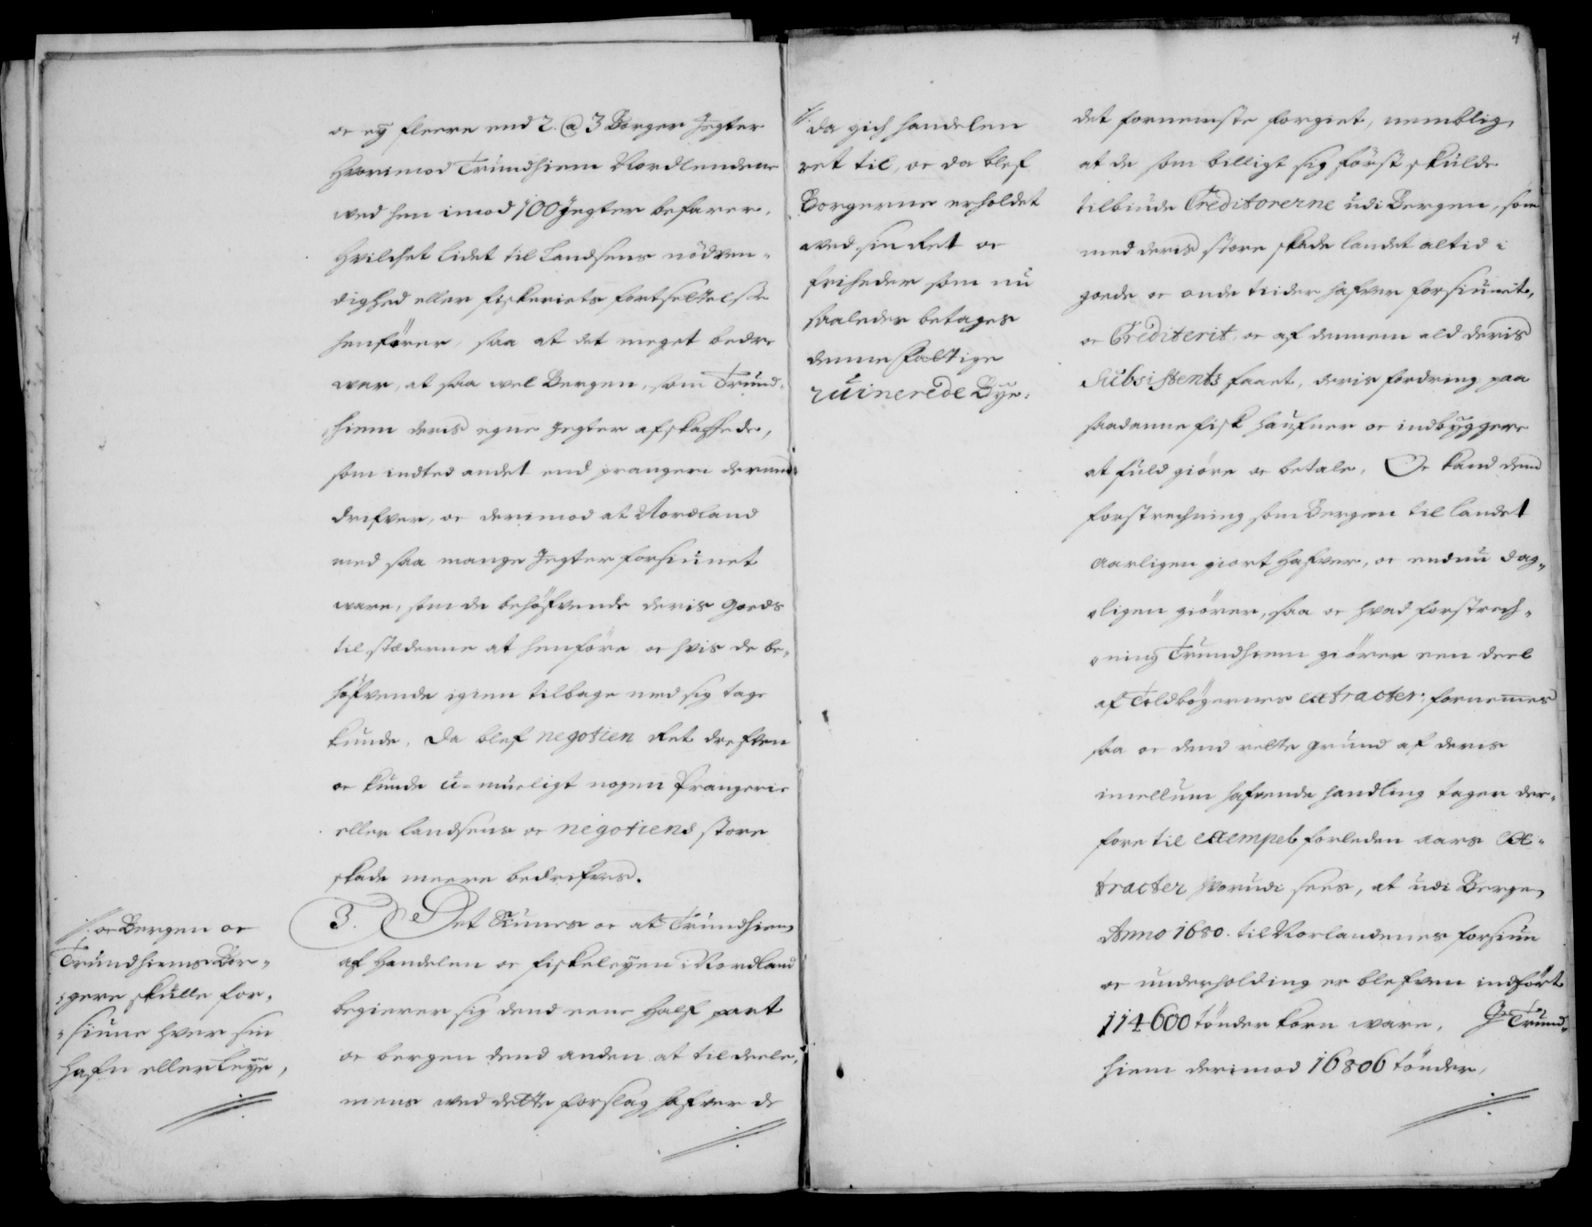 oc ey fleere end 2. @ 3 Borger Jegter
Hvorimod Trundhiem Nordlendene
ved hen imod 100 Jegter befarer,
Hvilchet lidet til Landsens nödven-
dighed eller fiskeriets fortsettelsse
henförer, saa at det meget bedre
var, at saa vel Bergen, som Trund-
hiem deris egne Jegter afskaffede,
som indted andet end prangeri dermed
drifver, oc derimod at Nordland
med saa mange Jegter forsiunet
vare, som de behöfvende deris goeds
til stæderne at henföre oc hvis de be-
höfvende igien tilbage med sig tage
kunde. Da blef negotien Ret drefven
oc kunde u-mueligt nogen Prangerie
eller landsens oc negotiens store
skade meere bedrifves.
3. Det Siunes oc at Trundhiem
af Handelen oc fiskeleyen i Nordland
begierer sig dend eene half part
oc bergen dend anden at tildeele,
mens ved dette forslag hafver de
//. oc Bergen oc
Trundhiems Bor-
gere skulle for-
siune hver sin
hafn eller leye,
4
//. da gich handelen
ret til, oc da blef
Borgerne erholdet
ved sin Ret oc
friheder som nu
saaledes betages
denne fattige
ruinerede Bye.
det fornemste forgiet, nemblig,
at de som billigt sig först skulde
tilbiude Creditorerne udi Bergen, som
med deris store skade landet altid i
goede oc onde tiider hafver forsiunit,
oc Crediterit, oc af dennem ald deris
Subsistents faaet, deris fordring paa
saadanne fisk haufner oc indbyggere
at fuldgiöre oc betale, Oc kand dend
forstrechning som Bergen til landet
aarligen giort hafver, oc endnu dag-
ligen giörer, saa oc hvad forstrech-
ning Trundhiem giörer een deel
af Toldbögernes extracter fornemmes
saa oc dend rette grund af deris
imellum hafvende handling tager der-
fore til exempel forleden aars Ex-
tracter hvorudi sees, at udi Bergen
Anno 1680. til Norlandenes forsiun
oc underholding er blefven indfört
114600 tönder korn vare, I Trund-
hiem derimod 16806 tönder,